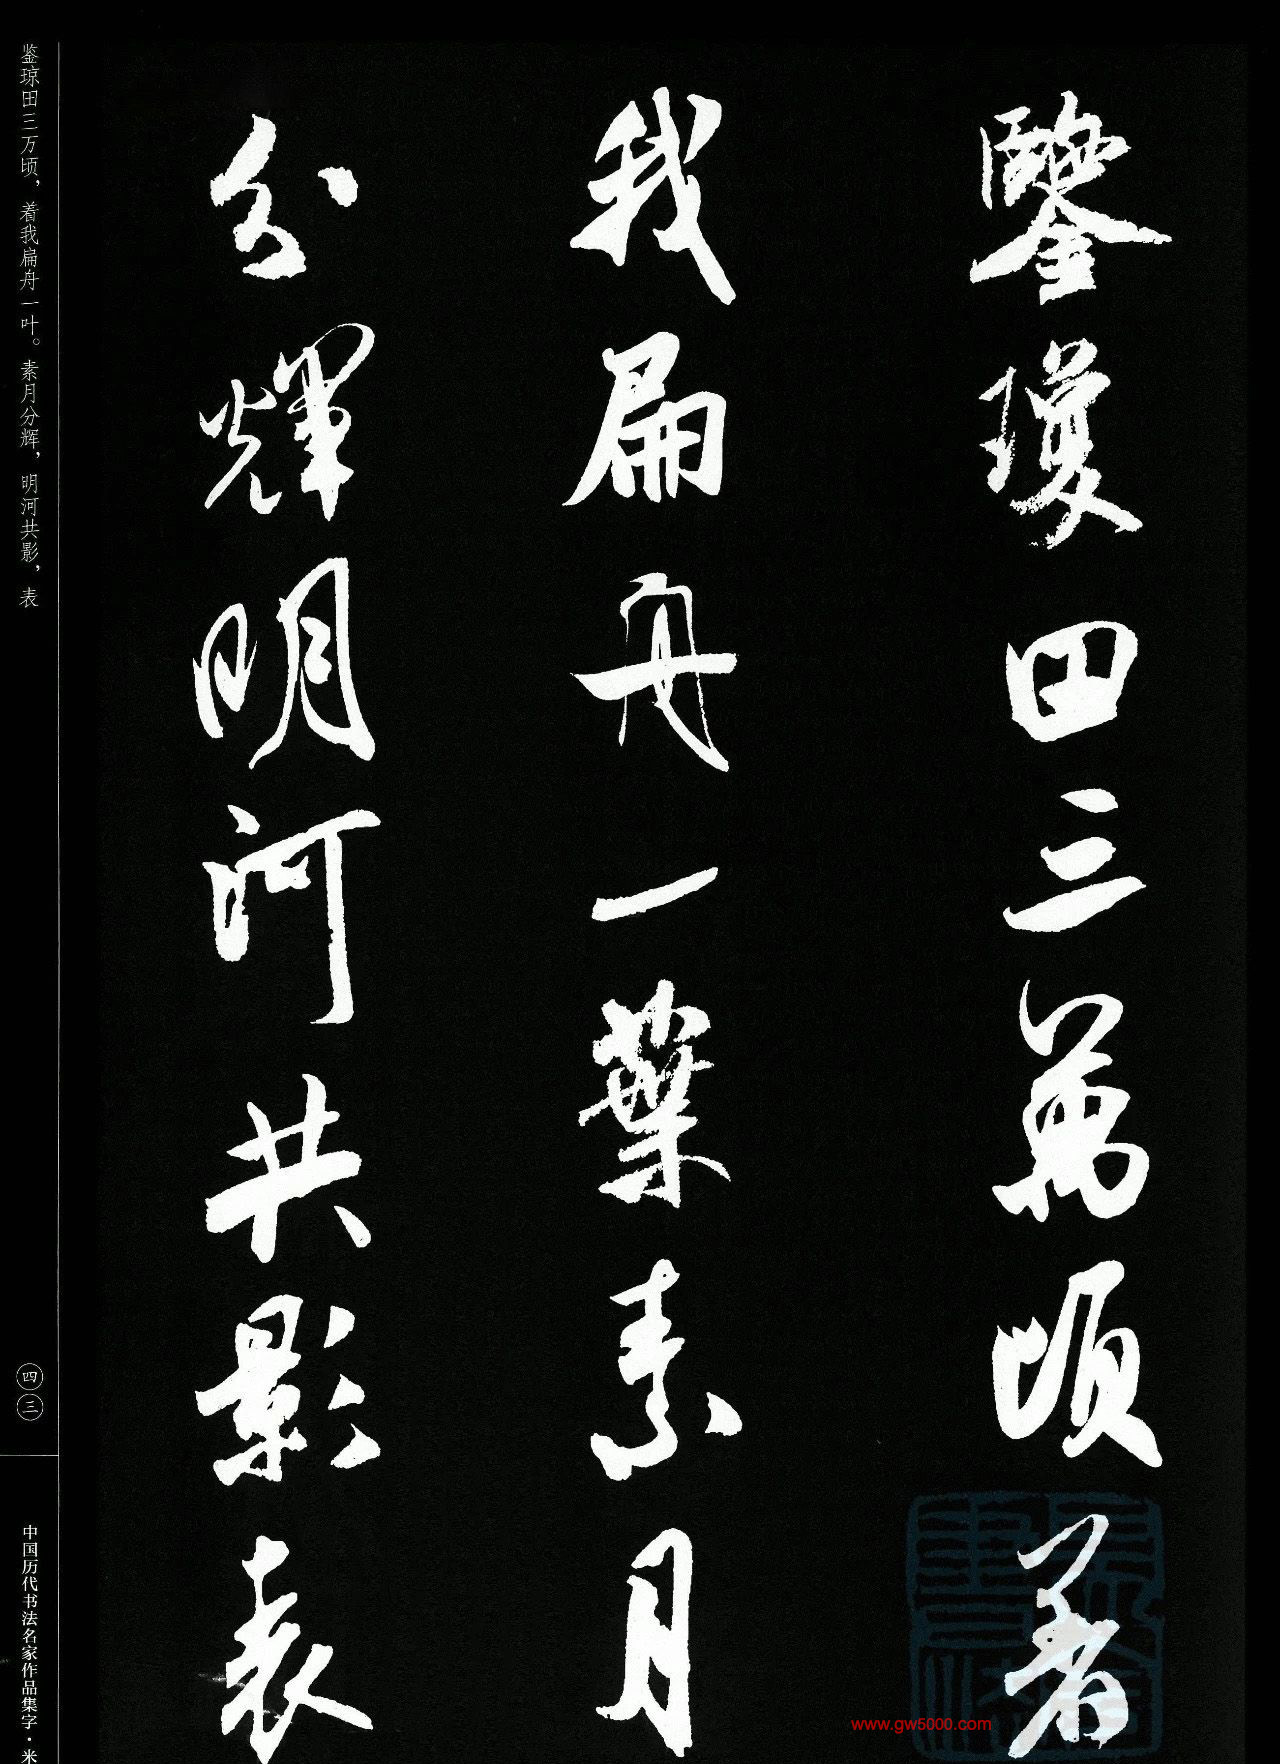 鑒瓊田三萬頃着
我扁舟一葉素月
分輝明河共影表
鉴琼田三万顷，着我扁舟一叶。素月分辉，明河共影，表
四三
中国历代书法名家作品集字·米
www.gw5000.com